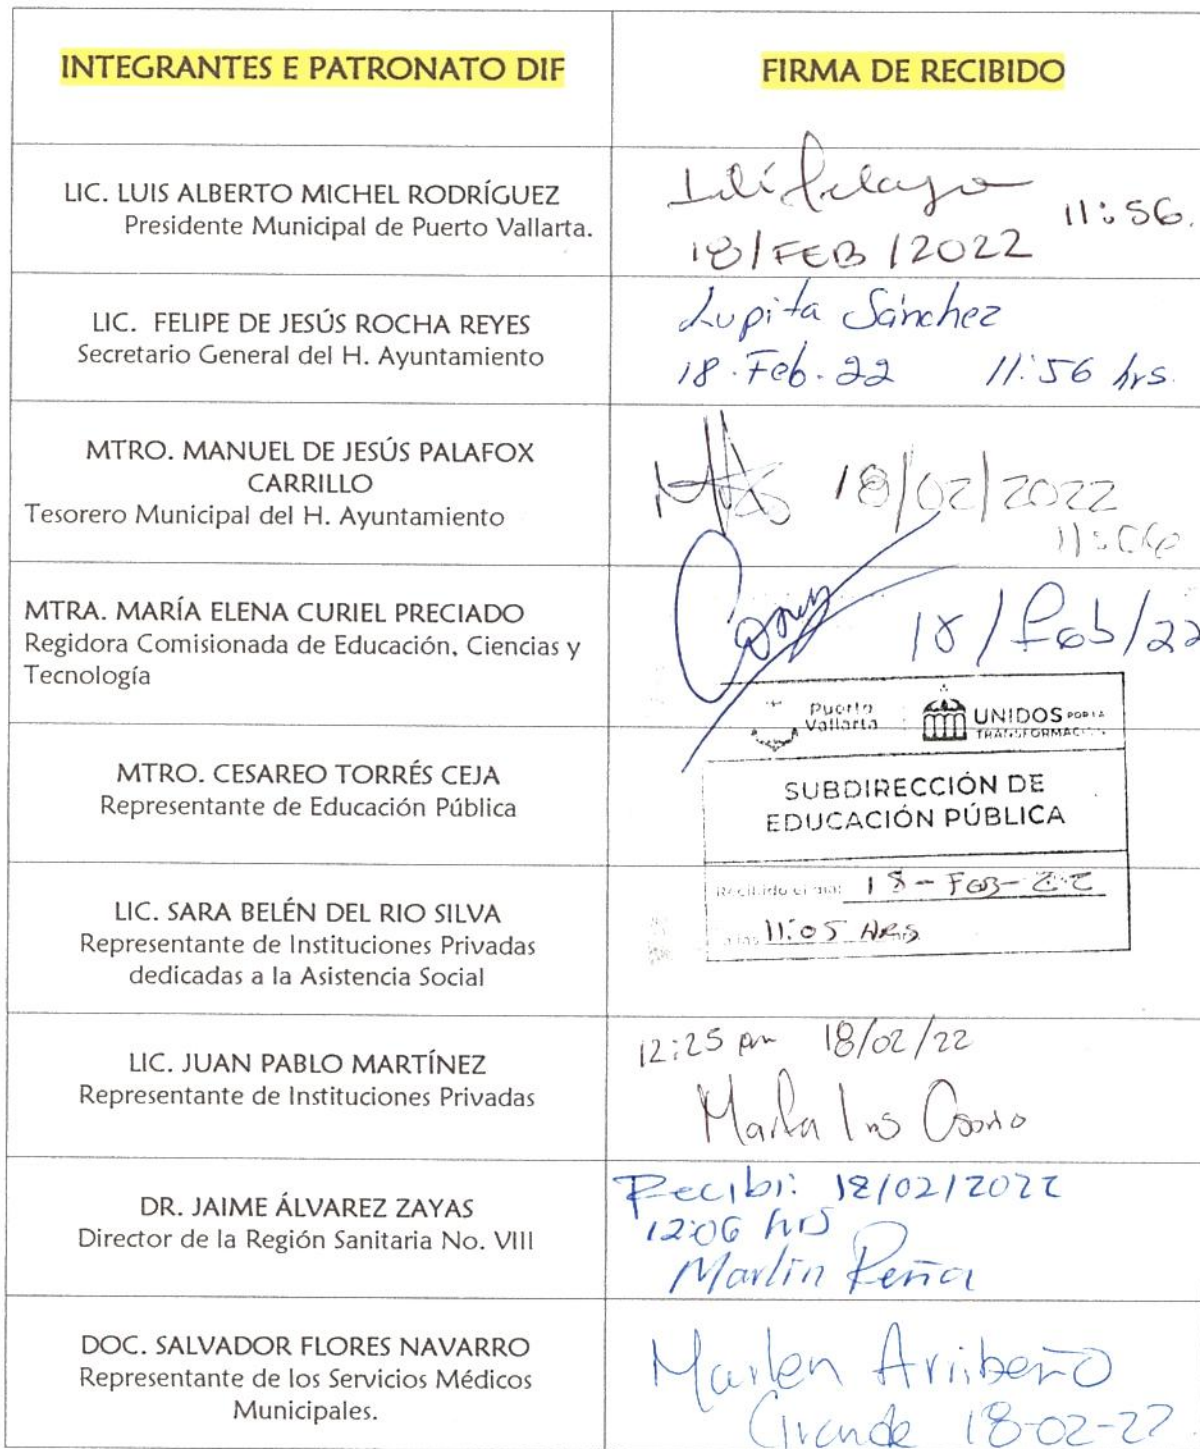 INTEGRANTES E PATRONATO DIF
FIRMA DE RECIBIDO
LIC. LUIS ALBERTO MICHEL RODRÍGUEZ
Presidente Municipal de Puerto Vallarta.
11:56.
18/FEB/2022
LIC. FELIPE DE JESÚS ROCHA REYES
Secretario General del H. Ayuntamiento
Lupita Sánchez
18.Feb.22 11:56 hrs.
MTRO. MANUEL DE JESÚS PALAFOX
CARRILLO
Tesorero Municipal del H. Ayuntamiento
18/02/2022
MTRA. MARÍA ELENA CURIEL PRECIADO
Regidora Comisionada de Educación, Ciencias y
Tecnología
18/Feb/22
MTRO. CESAREO TORRÉS CEJA
Representante de Educación Pública
Puerto
Vallarta
UNIDOS POR LA
TRANSFORMACIÓN
SUBDIRECCIÓN DE
EDUCACIÓN PÚBLICA
Recibido el día: 18-FEB-22
a las 11:05 HRS
LIC. SARA BELÉN DEL RIO SILVA
Representante de Instituciones Privadas
dedicadas a la Asistencia Social
LIC. JUAN PABLO MARTÍNEZ
Representante de Instituciones Privadas
12:25 pm 18/02/22
DR. JAIME ÁLVAREZ ZAYAS
Director de la Región Sanitaria No. VIII
Recibi: 18/02/2022
12:06 hrs
Martin Peña
DOC. SALVADOR FLORES NAVARRO
Representante de los Servicios Médicos
Municipales.
Marlen Arribeño
Grande 18-02-22